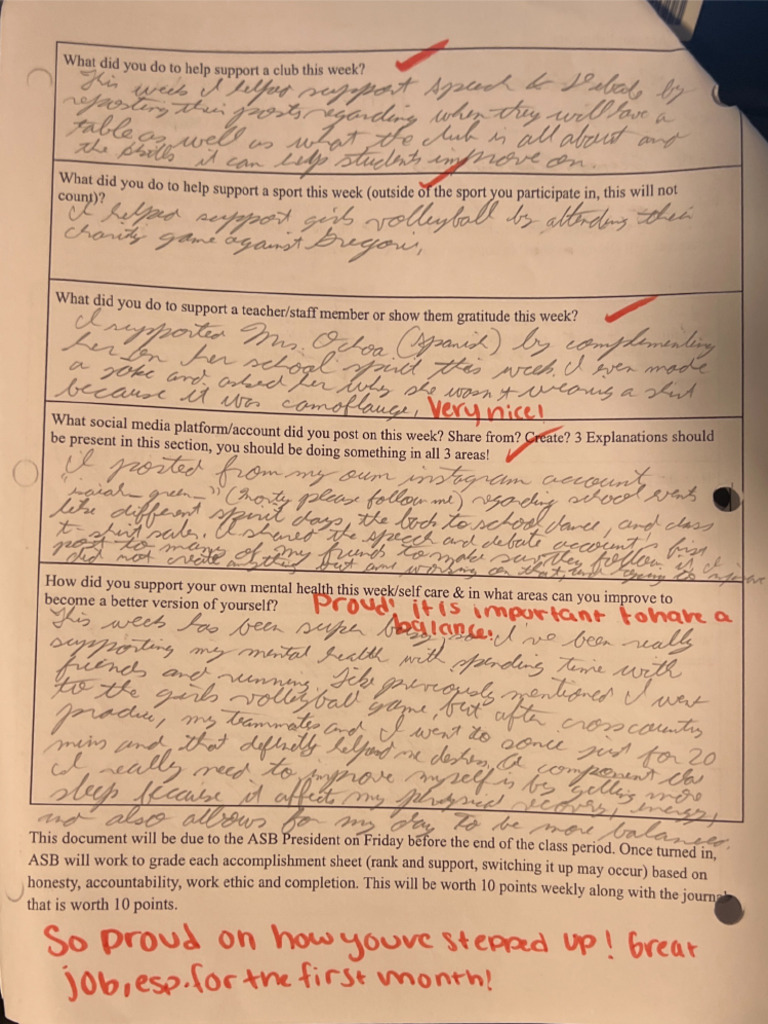 What did you do to help support a club this week?
This week I helped support speech & Debate by
reposting their posts regarding when they will have a
table as well as what the club is all about and
the skills it can help students improve on.
What did you do to help support a sport this week (outside of the sport you participate in, this will not
count)?
I helped support girls volleyball by attending their
charity game against Gregori,
What did you do to support a teacher/staff member or show them gratitude this week?
I supported Mrs. Ochoa (Spanish) by complementing
her on her school spirit this week. I even made
a joke and asked her why she wasn't wearing a shirt
because it was camoflauge,
Very nice!
What social media platform/account did you post on this week? Share from? Create? 3 Explanations should
be present in this section, you should be doing something in all 3 areas!
I posted from my own instagram account
(Shorty please follow me) regarding school events
like different spirit days, the back to school dance, and class
t-shirt sales. I shared the speech and debate account's first
post to many of my friends to make sure they follow it. I
did not create anything but am working on that, and
How did you support your own mental health this week/self care & in what areas can you improve to
become a better version of yourself?
Proud! it is important to have a
balance!
This week has been super busy, so I've been really
supporting my mental health with spending time with
friends and running. Like previously mentioned I went
to the girls volleyball game, but after cross country
practice, my teammates and I went to sonic just for 20
mins and that definetly helped me destress, A component
I really need to improve myself is by getting more
sleep because it affects my physical recovery, energy,
and also allows for my day to be more balanced.
This document will be due to the ASB President on Friday before the end of the class period. Once turned in,
ASB will work to grade each accomplishment sheet (rank and support, switching it up may occur) based on
honesty, accountability, work ethic and completion. This will be worth 10 points weekly along with the journal
that is worth 10 points.
So proud on how youve stepped up! Great
job, esp. for the first month!